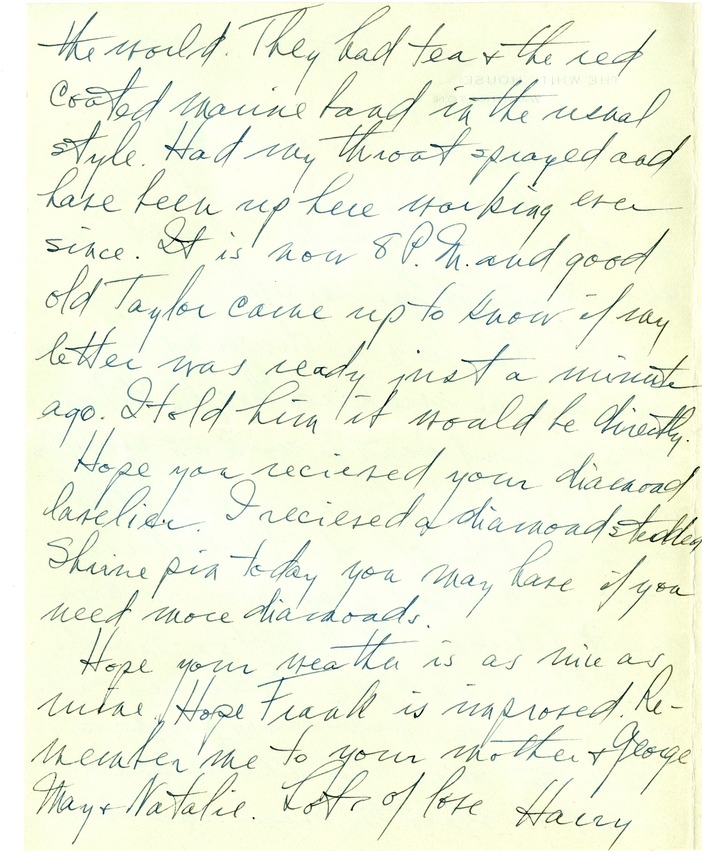 the world. They had tea & the red
coated marine band in the usual
style. Had my throat sprayed and
have been up here working ever
since. It is now 8 P.M. and good
old Taylor came up to know if my
letter was ready just a minute
ago. I told him it would be directly.
Hope you recieved your diamond
lavelier. I recieved a diamond studded
Shrine pin today you may have if you
need more diamonds.
Hope your weather is as nice as
mine. Hope Frank is improved. Re-
member me to your mother & George
May & Natalie. Lots of love Harry
THE WHITE HOUSE